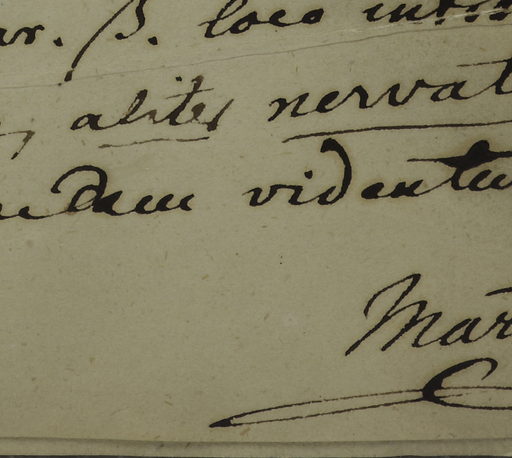 ar. β. loco
, aliter nervat
edam videntu
Mar